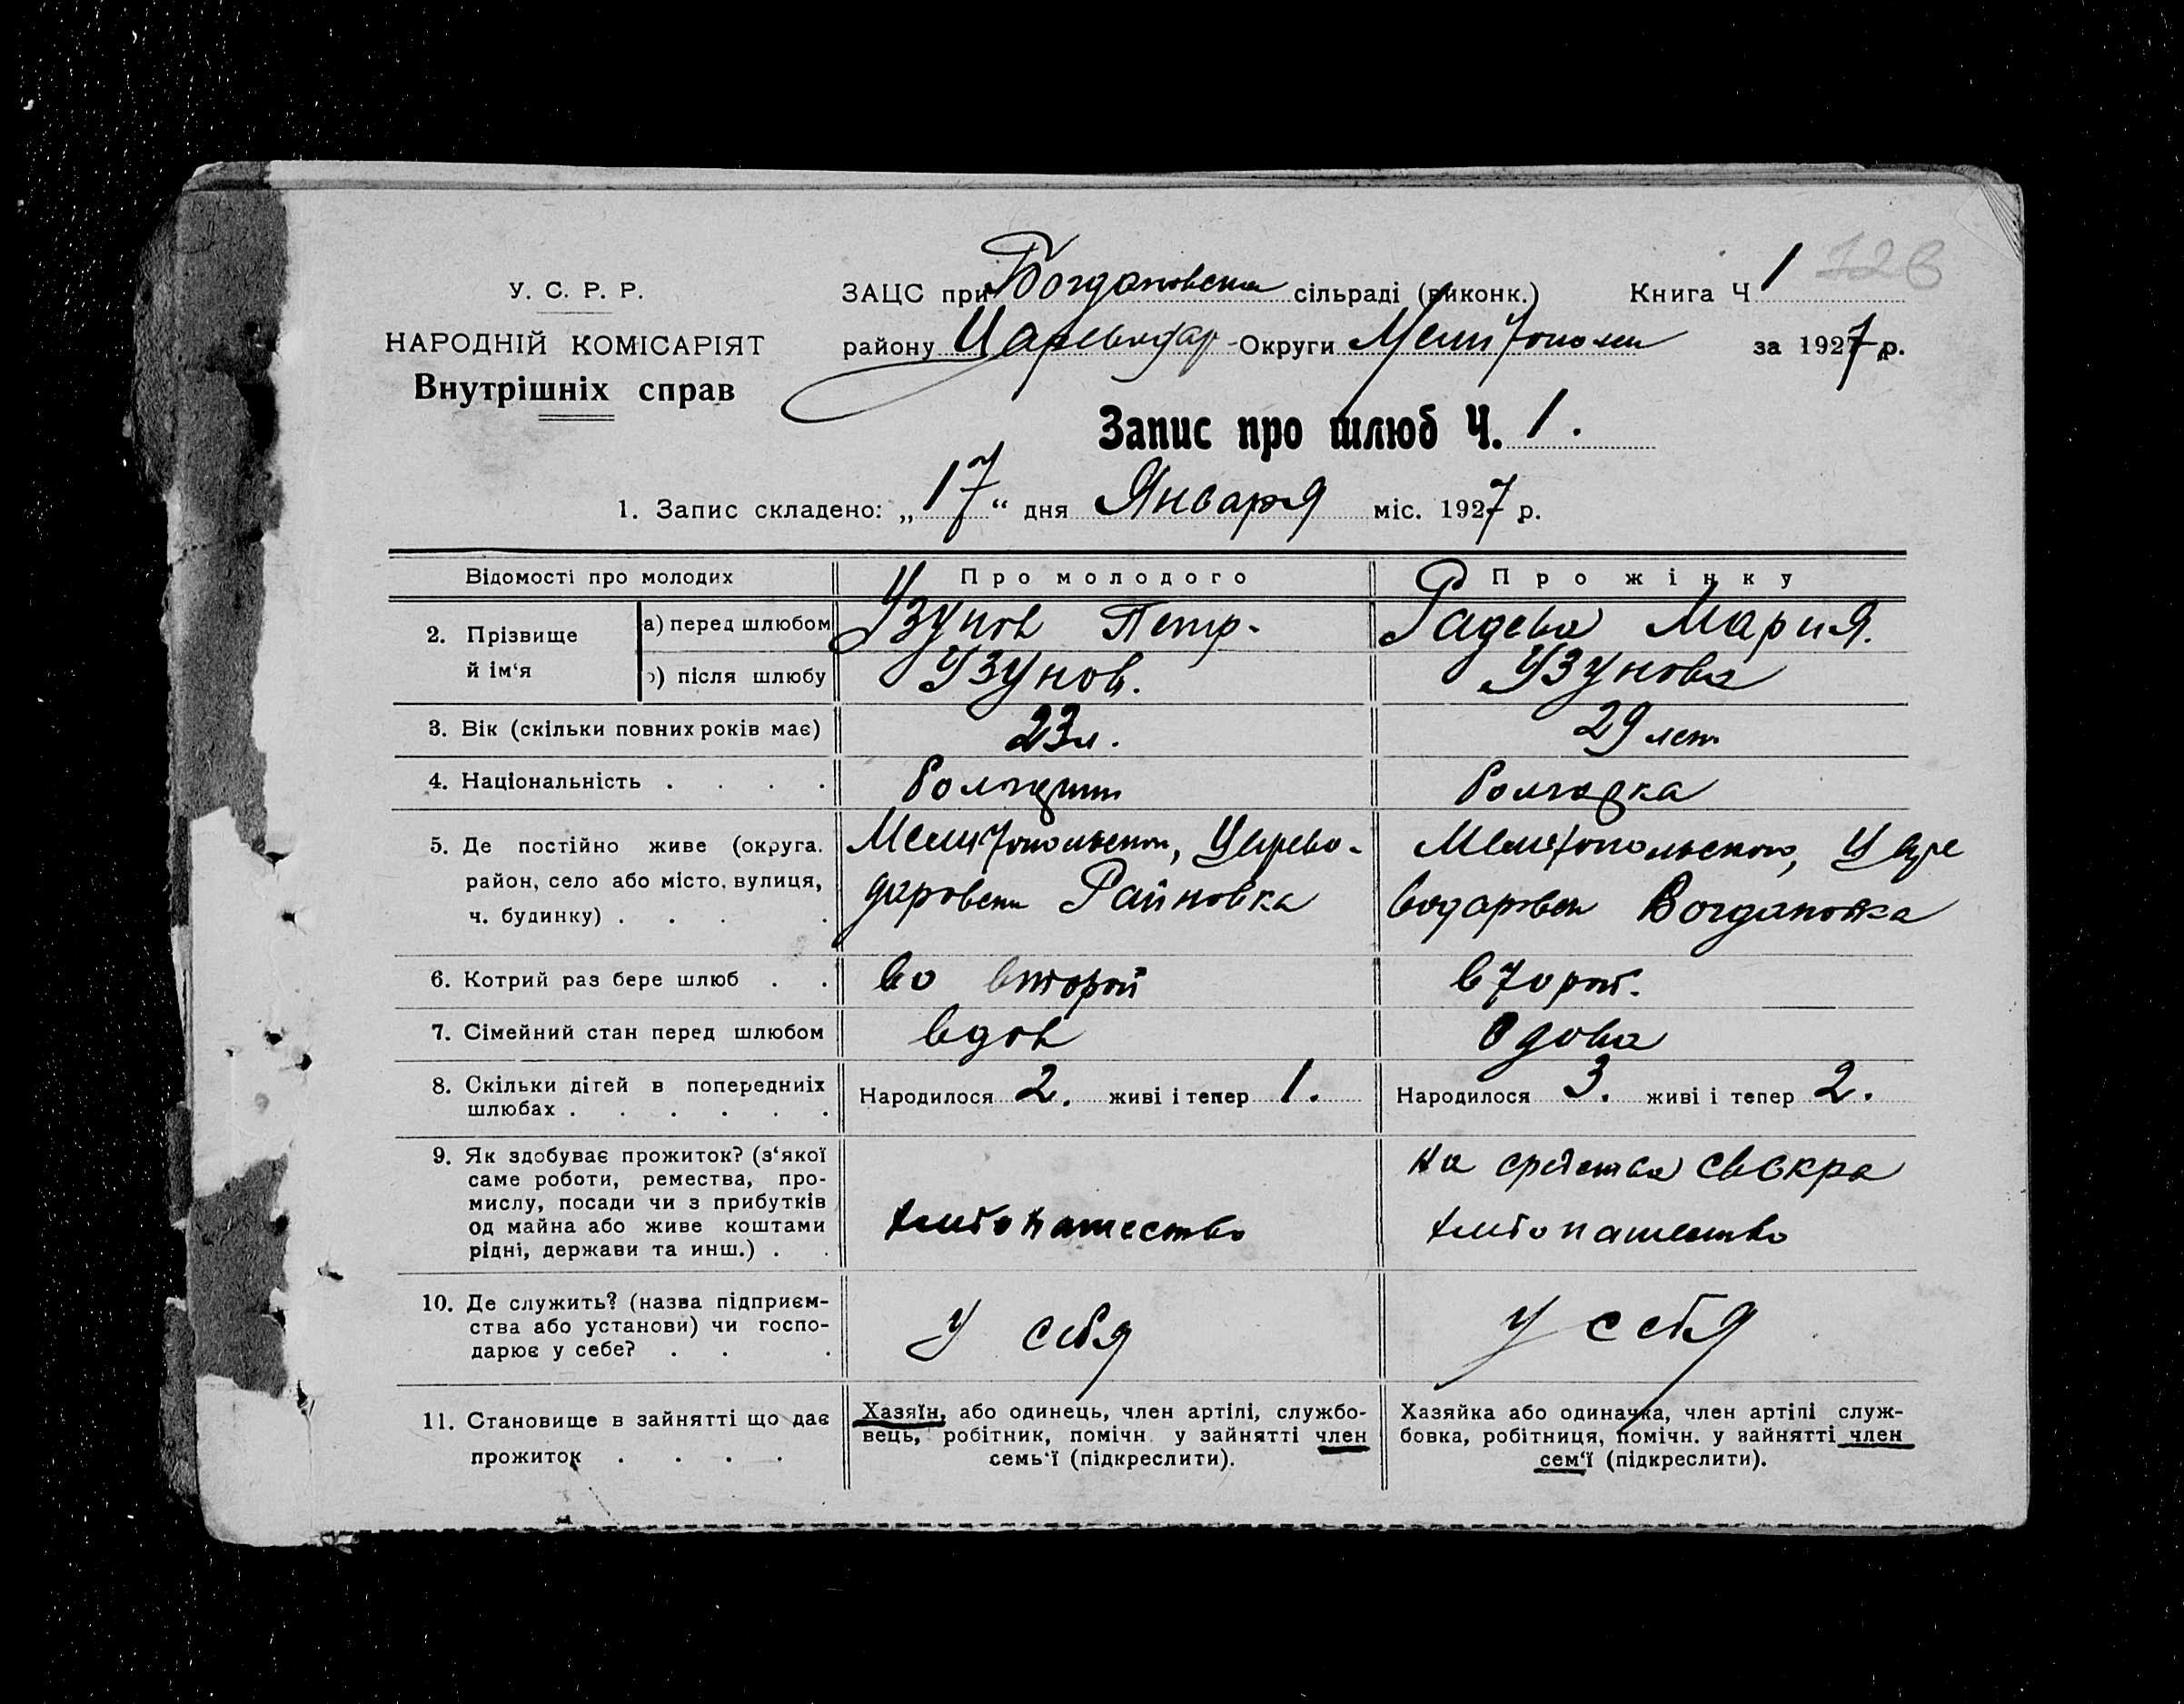 У. С. Р. Р.
НАРОДНІЙ КОМІСАРІЯТ
Внутрішніх справ
ЗАЦС при Богдановском сільраді (виконк.) Книга Ч 1
району Царевдар - Округи Мелитополи за 1927 р.
Запис про шлюб Ч. 1.
1. Запис складено: „17“ дня Января міс. 1927 р.
Відомості про молодих Про молодого Про жінку
2. Прізвище й ім‘я
а) перед шлюбом Узунов Петр. Радева Мария.
) після шлюбу Узунов. Узунова
3. Вік (скільки повних років має) 23 л. 29 лет
4. Національність . . . . болгарин болгарка
5. Де постійно живе (округа, Мелитопольской, Царево- Мелитопольского, Царе
район, село або місто, вулиця, даровски Райновка водаровск Богдановка
ч. будинку) . . . .
6. Котрий раз бере шлюб . . во второй второй.
7. Сімейний стан перед шлюбом вдов вдова
8. Скільки дітей в попередниіх Народилося 2. живі і тепер 1. Народилося 3. живі і тепер 2.
шлюбах . . . . . .
9. Як здобуває прожиток? (з‘якої на средства свекра
саме роботи, ремества, про-
мислу, посади чи з прибутків
од майна або живе коштами хлебопашество хлебопашество
рідні, держави та инш.) . .
10. Де служить? (назва підприєм-
ства або установи) чи госпо- у себя у себя
дарює у себе? . . .
11. Становище в зайнятті що дає
прожиток . . . .
Хазяїн, або одинець, член артілі, службо-
вець, робітник, помічн. у зайнятті член
семь‘ї (підкреслити).
Хазяйка або одиначка, член артілі служ-
бовка, робітниця, помічн. у зайнятті член
сем‘ї (підкреслити).